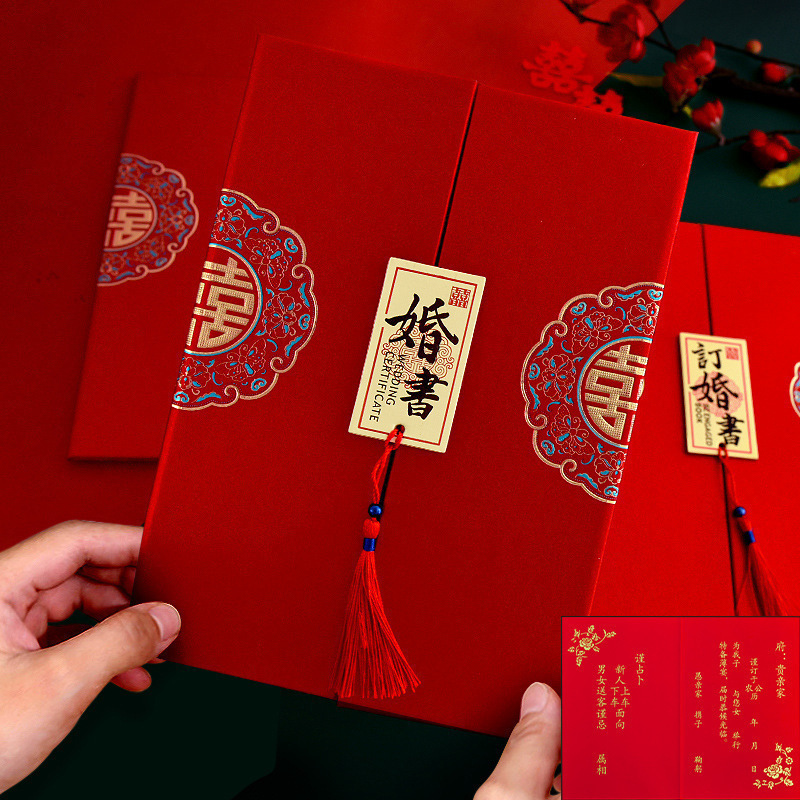 婚書
WEDDING
CERTIFICATE
訂婚書
BE ENGAGED
BOOK
囍
囍
囍
府：贵亲家
谨订于公历 年 月 日
农
为我子 与您女 举行
特备薄宴，届时恭候光临。
愚亲家 携子 鞠躬
谨占卜
新人上车面向
下车
男女送客谨忌 属相